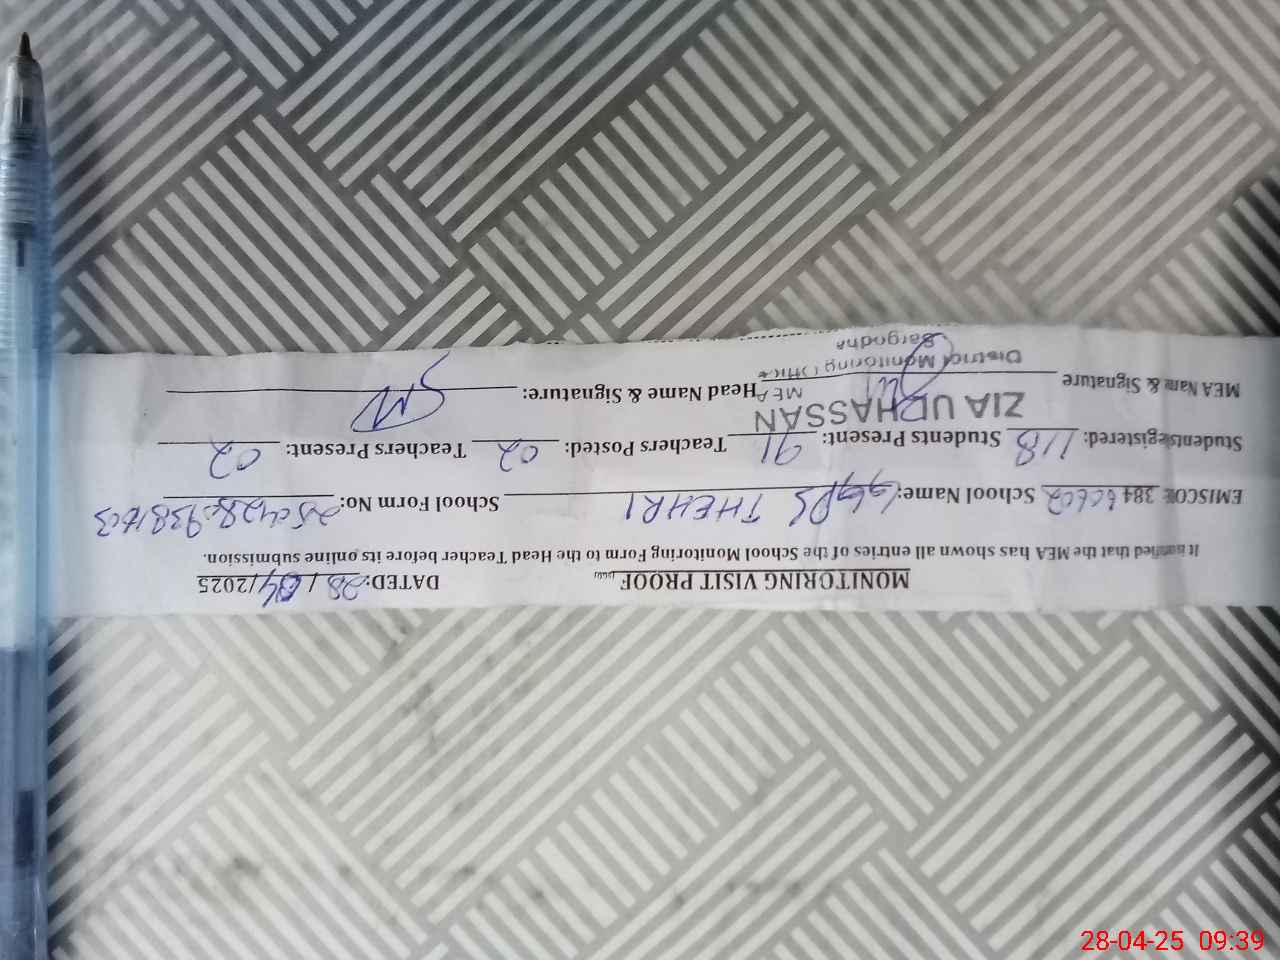 MONITORING VISIT PROOF DATED: 28/04/2025
It is certified that the MEA has shown all entries of the School Monitoring Form to the Head Teacher before its online submission.
EMISCODE 384 School Name: GGPS THEHRI School Form No:
Students Registered: 118 Students Present: 91 Teachers Posted: 02 Teachers Present: 02
ZIA UL HASSAN
MEA Name & Signature MEA Head Name & Signature:
District Monitoring Office
Sargodha
28-04-25 09:39